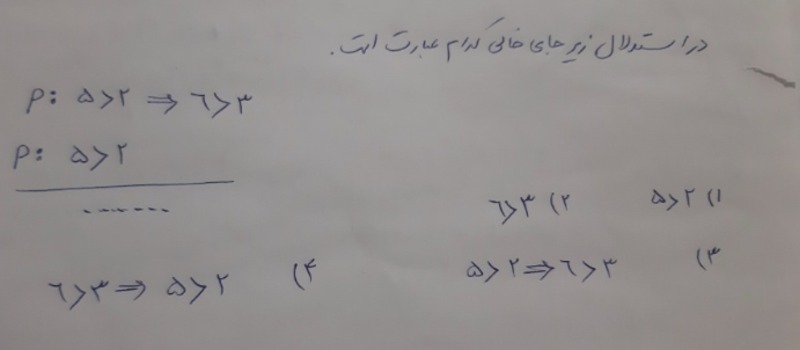 در استدلال زیر جای خالی کدام عبارت است.
P: ۵>۲ ⇒ ۶>۳
P: ۵>۲
.......
۱) ۵>۲ ۲) ۶>۳
۳) ۵>۲ ⇒ ۶>۳ ۴) ۶>۳ ⇒ ۵>۲